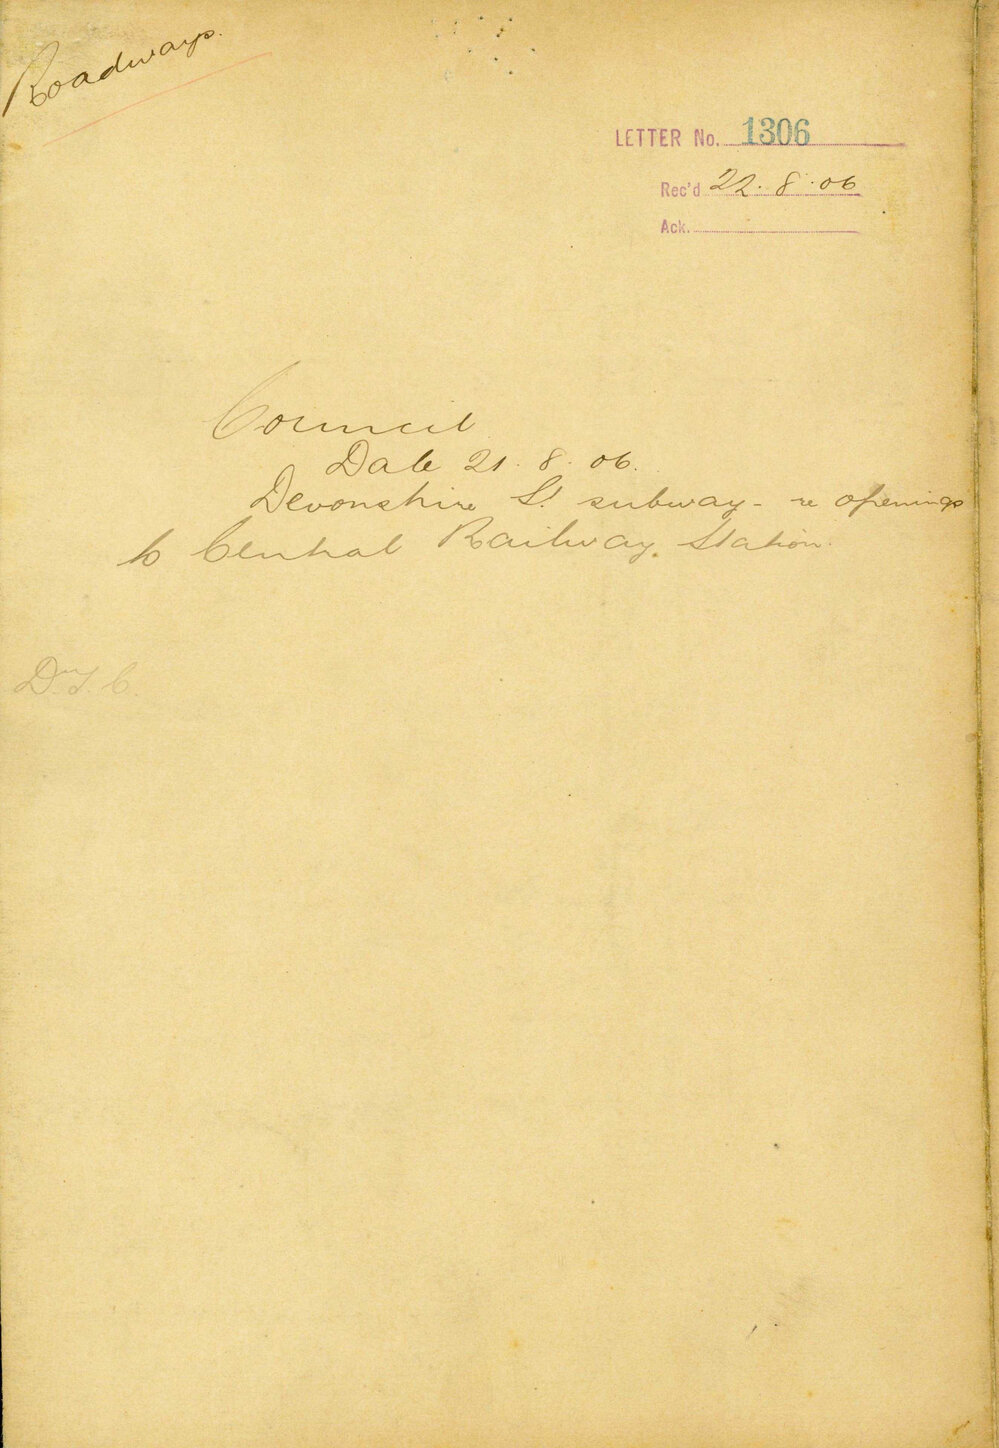 Roadways.
LETTER No. 1306
Rec'd 22. 8. 06
Ack.
Council
Date 21. 8. 06.
Devonshire St. subway - re openings
to Central Railway Station.